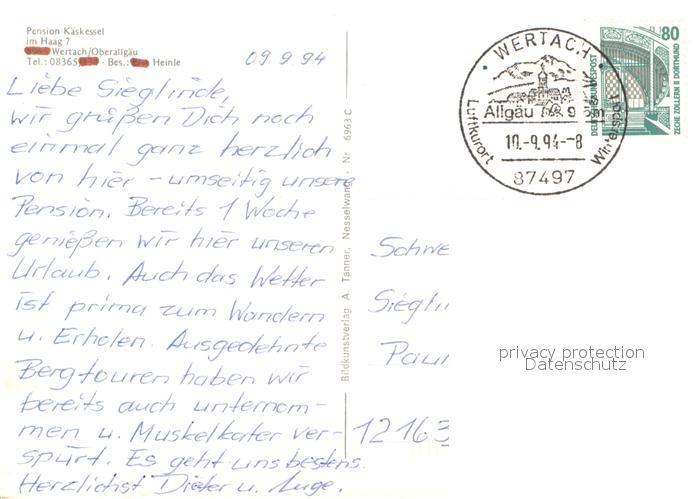 Pension Käskessel
im Haag 7
Wertach/Oberallgäu
Tel.: 08365 - Bes.: Heinle
09.9.94
Liebe Sieglinde,
wir grüßen Dich noch
einmal ganz herzlich
von hier - umseitig unsere
Pension. Bereits 1 Woche
genießen wir hier unseren
Urlaub. Auch das Wetter
ist prima zum Wandern
u. Erholen. Ausgedehnte
Bergtouren haben wir
bereits auch unternom-
men u. Muskelkater ver-
spürt. Es geht uns bestens.
Herzlichst Dieter u. Inge.
Bildkunstverlag A. Tanner, Nesselwang - Nr. 6963 C
WERTACH
Allgäu 915 m
Luftkurort
Wintersport
10.-9.94--8
87497
80
DEUTSCHE BUNDESPOST
ZECHE ZOLLERN II DORTMUND
Schwe
Siegli
Paul
12163
privacy protection
Datenschutz